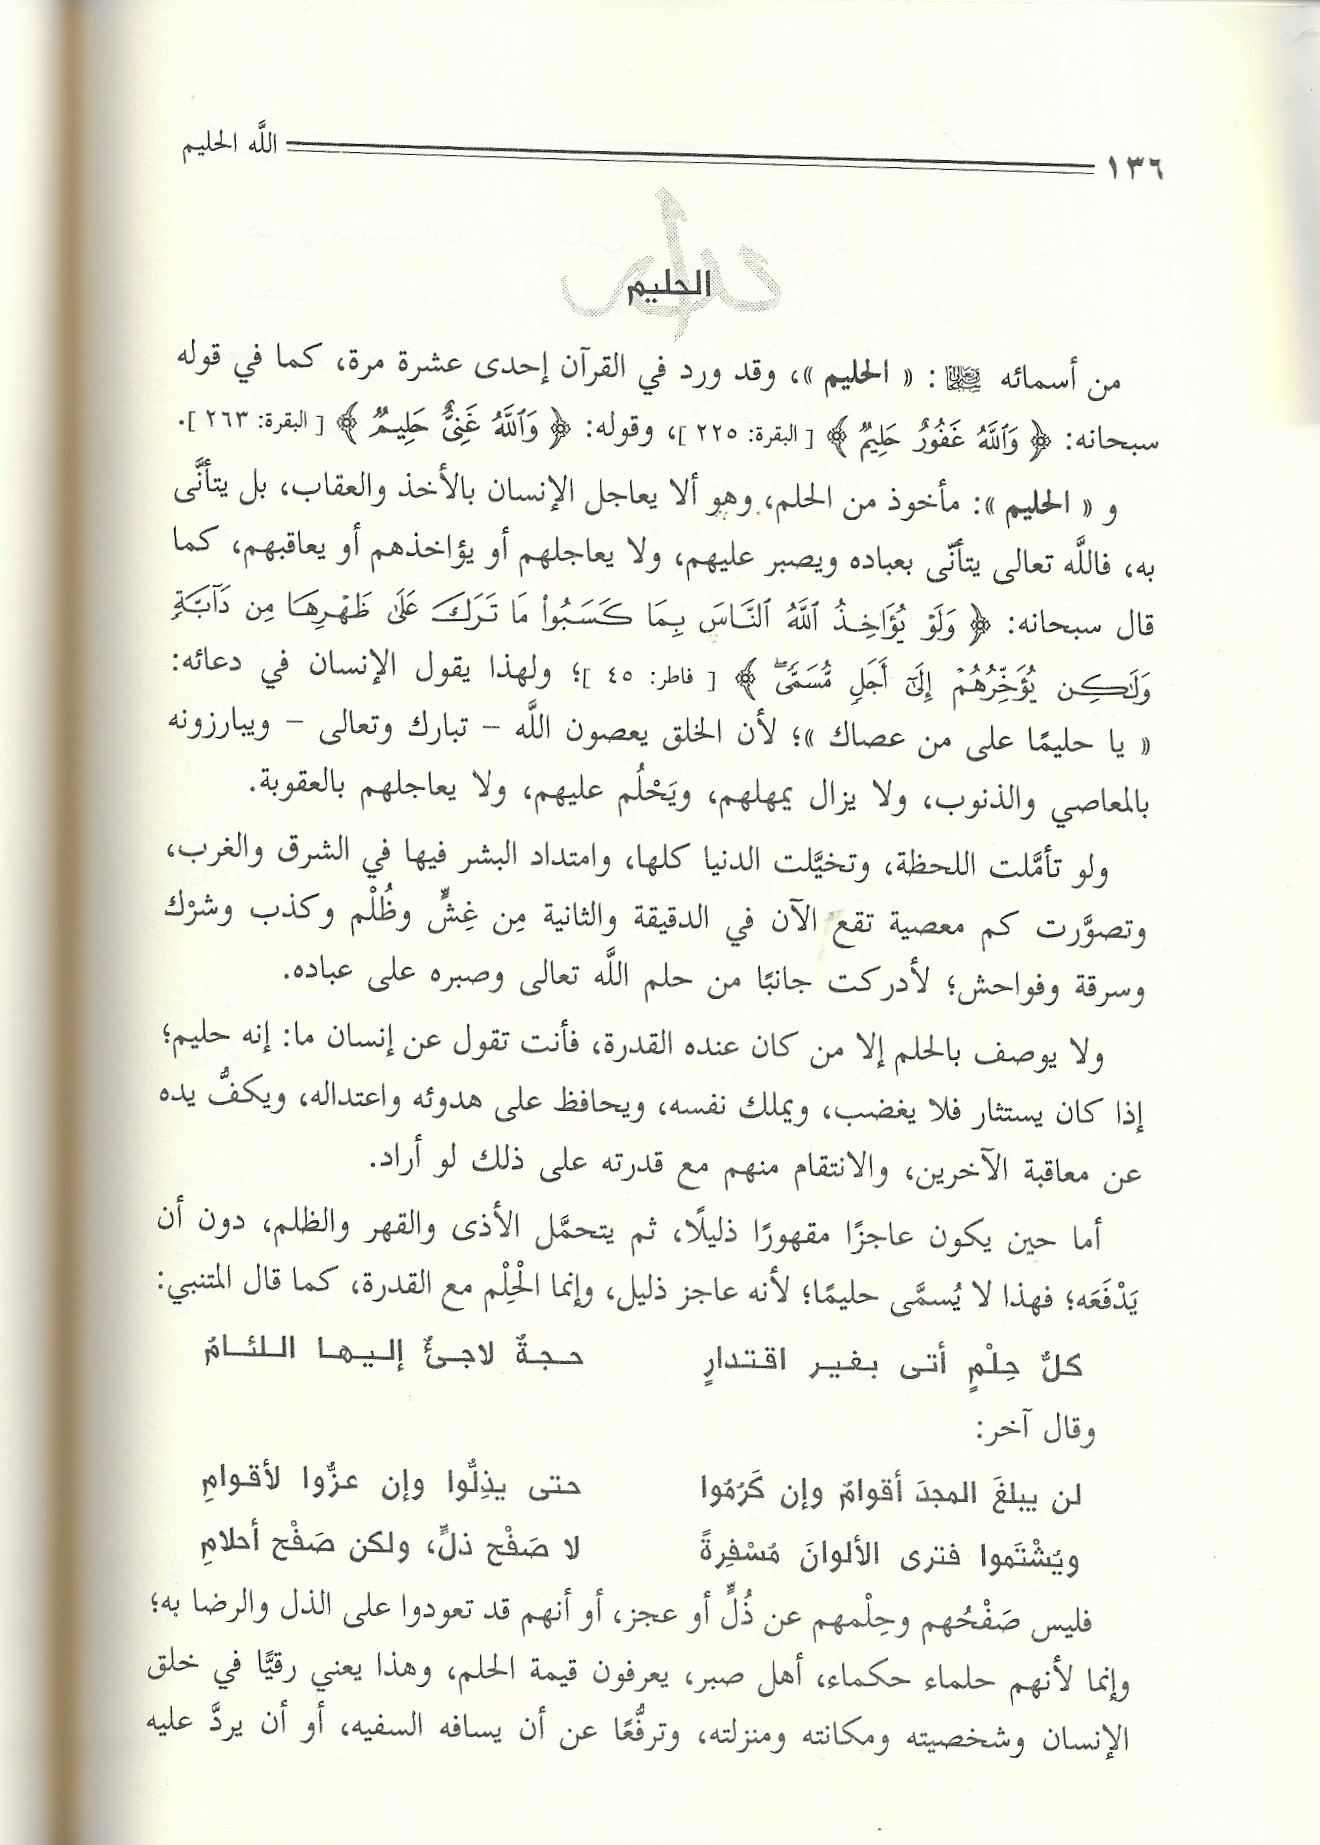 ١٣٦ اللَّه الحليم
الحليم
من أسمائه ﷻ : « الحليم »، وقد ورد في القرآن إحدى عشرة مرة، كما في قوله
سبحانه: ﴿ وَٱللَّهُ غَفُورٌ حَلِيمٌ ﴾ [ البقرة: ٢٢٥ ]، وقوله: ﴿ وَٱللَّهُ غَنِىٌّ حَلِيمٌ ﴾ [ البقرة: ٢٦٣ ].
و « الحليم »: مأخوذ من الحلم، وهو ألا يعاجل الإنسان بالأخذ والعقاب، بل يتأنَّى
به، فاللَّه تعالى يتأنّى بعباده ويصبر عليهم، ولا يعاجلهم أو يؤاخذهم أو يعاقبهم، كما
قال سبحانه: ﴿ وَلَوْ يُؤَاخِذُ ٱللَّهُ ٱلنَّاسَ بِمَا كَسَبُوا۟ مَا تَرَكَ عَلَىٰ ظَهْرِهَا مِن دَآبَّةٍ
وَلَـٰكِن يُؤَخِّرُهُمْ إِلَىٰٓ أَجَلٍ مُّسَمًّى ۖ ﴾ [ فاطر: ٤٥ ]؛ ولهذا يقول الإنسان في دعائه:
« يا حليمًا على من عصاك »؛ لأن الخلق يعصون اللَّه – تبارك وتعالى – ويبارزونه
بالمعاصي والذنوب، ولا يزال يمهلهم، ويَحْلُم عليهم، ولا يعاجلهم بالعقوبة.
ولو تأمَّلت اللحظة، وتخيَّلت الدنيا كلها، وامتداد البشر فيها في الشرق والغرب،
وتصوَّرت كم معصية تقع الآن في الدقيقة والثانية مِن غِشٍّ وظُلْم وكذب وشرْك
وسرقة وفواحش؛ لأدركت جانبًا من حلم اللَّه تعالى وصبره على عباده.
ولا يوصف بالحلم إلا من كان عنده القدرة، فأنت تقول عن إنسان ما: إنه حليم؛
إذا كان يستثار فلا يغضب، ويملك نفسه، ويحافظ على هدوئه واعتداله، ويكفُّ يده
عن معاقبة الآخرين، والانتقام منهم مع قدرته على ذلك لو أراد.
أما حين يكون عاجزًا مقهورًا ذليلًا، ثم يتحمَّل الأذى والقهر والظلم، دون أن
يَدْفَعَه؛ فهذا لا يُسمَّى حليمًا؛ لأنه عاجز ذليل، وإنما الْحِلْم مع القدرة، كما قال المتنبي:
كلُّ حِلْمٍ أتى بغير اقتدارٍ حجةٌ لاجئٌ إليها اللئامُ
وقال آخر:
لن يبلغَ المجدَ أقوامٌ وإن كَرُمُوا حتى يذِلُّوا وإن عزُّوا لأقوامِ
ويُشْتَموا فترى الألوانَ مُسْفِرةً لا صَفْح ذلٍّ، ولكن صَفْح أحلامِ
فليس صَفْحُهم وحِلْمهم عن ذُلٍّ أو عجز، أو أنهم قد تعودوا على الذل والرضا به؛
وإنما لأنهم حلماء حكماء، أهل صبر، يعرفون قيمة الحلم، وهذا يعني رقيًّا في خلق
الإنسان وشخصيته ومكانته ومنزلته، وترفُّعًا عن أن يسافه السفيه، أو أن يردَّ عليه